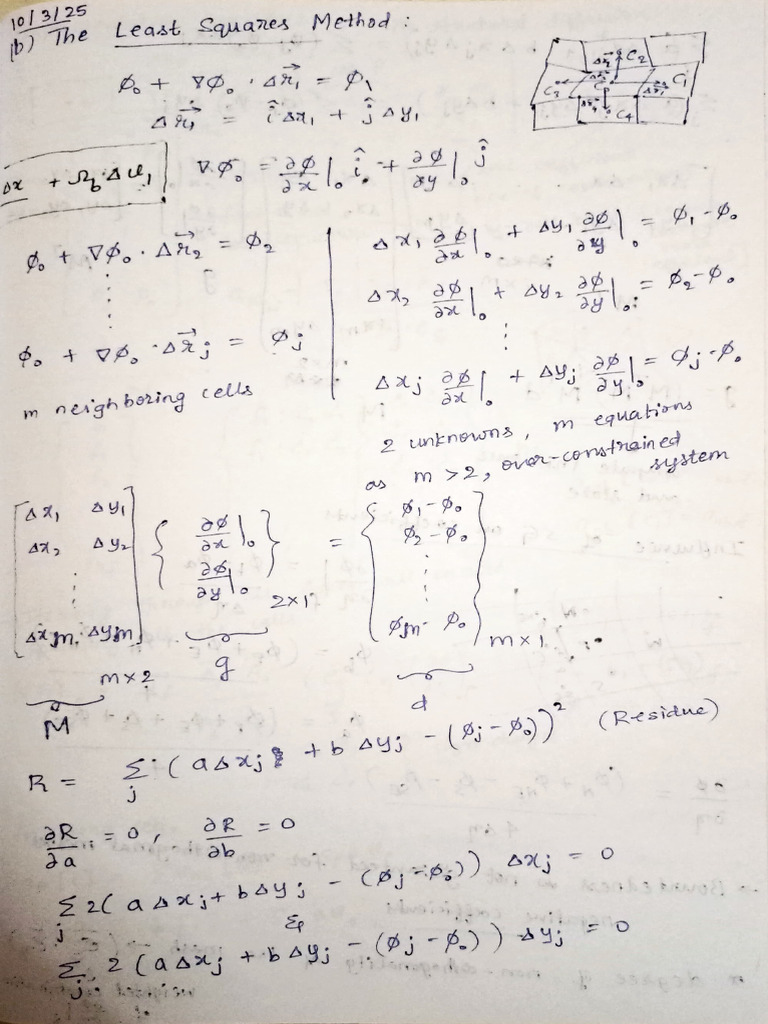 10/3/25
(b) The Least Squares Method :
φ₀ + ∇φ₀ · Δr⃗₁ = φ₁
Δr⃗₁ = î Δx₁ + ĵ Δy₁
C₂
C₃ C₁
C₄
∇φ₀ = ∂φ/∂x|₀ î + ∂φ/∂y|₀ ĵ
φ₀ + ∇φ₀ · Δr⃗₂ = φ₂
⋮
φ₀ + ∇φ₀ · Δr⃗ⱼ = φⱼ
m neighboring cells
Δx₁ ∂φ/∂x|₀ + Δy₁ ∂φ/∂y|₀ = φ₁ - φ₀
Δx₂ ∂φ/∂x|₀ + Δy₂ ∂φ/∂y|₀ = φ₂ - φ₀
⋮
Δxⱼ ∂φ/∂x|₀ + Δyⱼ ∂φ/∂y|₀ = φⱼ - φ₀
2 unknowns, m equations
as m > 2, over-constrained
system
[Δx₁ Δy₁; Δx₂ Δy₂; ⋮ Δxm Δym] m×2 {∂φ/∂x|₀; ∂φ/∂y|₀} 2×1 = {φ₁ - φ₀; φ₂ - φ₀; ⋮ φm - φ₀} m×1
M g d
R = Σⱼ (aΔxⱼ + bΔyⱼ - (φⱼ - φ₀))² (Residue)
∂R/∂a = 0, ∂R/∂b = 0
Σⱼ 2(aΔxⱼ + bΔyⱼ - (φⱼ - φ₀)) Δxⱼ = 0
&
Σⱼ 2(aΔxⱼ + bΔyⱼ - (φⱼ - φ₀)) Δyⱼ = 0